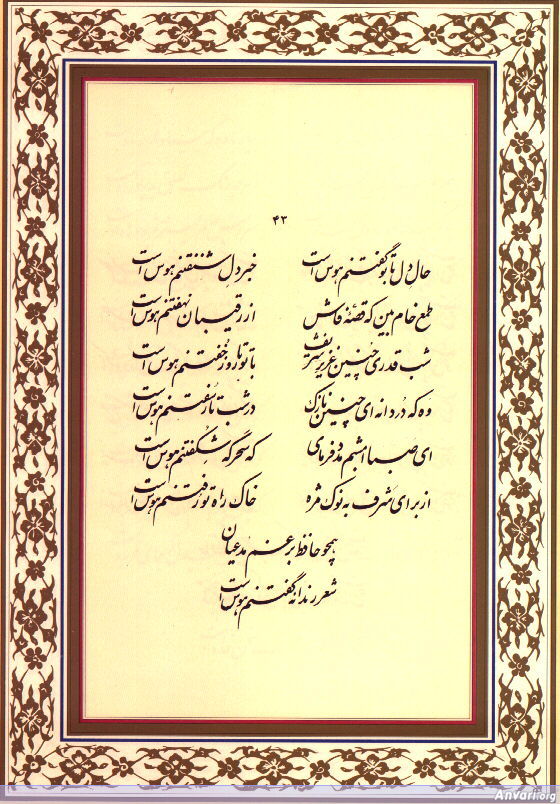 ۴۳
حال دل با تو گفتنم هوس است خبر دل شنفتنم هوس است
طمع خام بین که قصهٔ فاش از رقیبان نهفتنم هوس است
شب قدری چنین عزیز شریف با تو تا روز خفتنم هوس است
وه که دردانه ای چنین نازک در شب تار سفتنم هوس است
ای صبا امشبم مدد فرمای که سحرگه شکفتنم هوس است
از برای شرف به نوک مژه خاک راه تو رفتنم هوس است
همچو حافظ برغم مدعیان
شعر رندانه گفتنم هوس است
Anvari.org